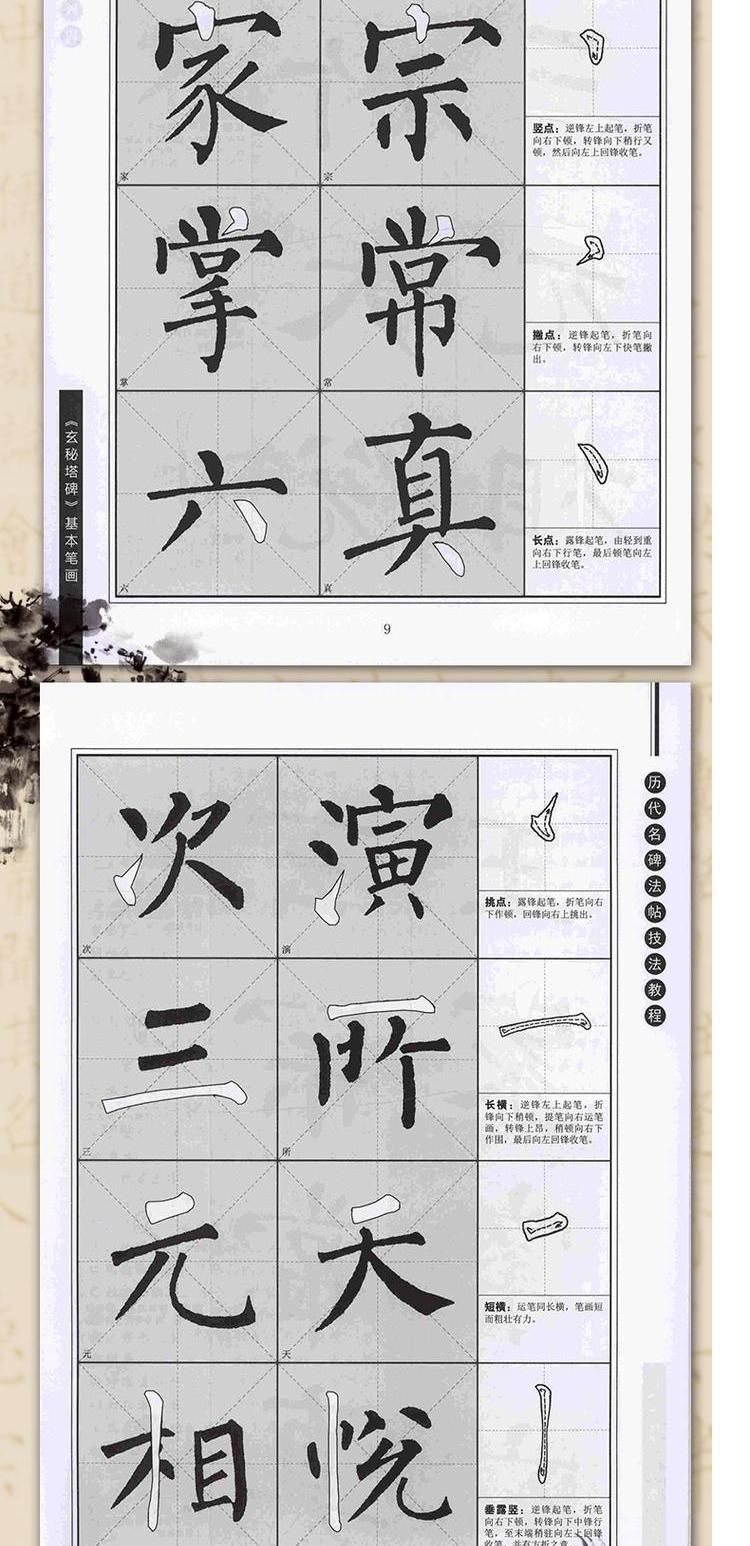 家
宗
竖点：逆锋左上起笔，折笔
向右下顿，转锋向下稍行又
顿，然后向左上回锋收笔。
家
宗
掌
常
撇点：逆锋起笔，折笔向
右下顿，转锋向左下快笔撇
出。
掌
常
六
真
长点：露锋起笔，由轻到重
向右下行笔，最后顿笔向左
上回锋收笔。
六
真
《玄秘塔碑》基本笔画
9
历代名碑法帖技法教程
次
演
挑点：露锋起笔，折笔向右
下作顿，回锋向右上挑出。
次
演
三
所
长横：逆锋左上起笔，折
锋向下稍顿，提笔向右运笔
画，转锋上昂，稍顿向右下
作围，最后向左回锋收笔。
三
所
元
天
短横：运笔同长横，笔画短
而粗壮有力。
元
天
相
悦
垂露竖：逆锋起笔，折笔
向右下顿，转锋向下中锋行
笔，至末端稍驻向左上回锋
收笔，并有方折之意。